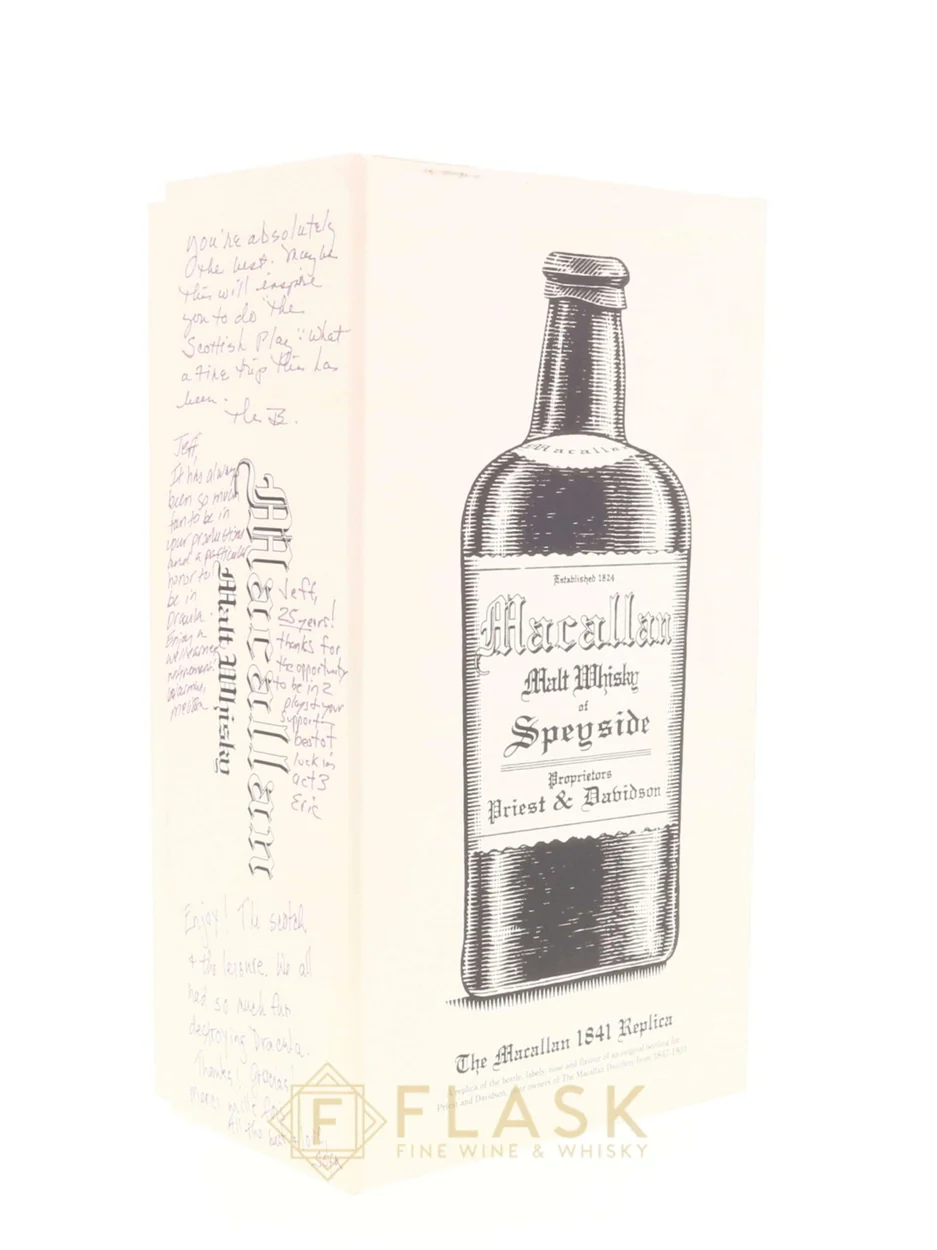 you're absolutely
the best. Maybe
this will inspire
you to do "the
Scottish Play": What
a fine trip this has
been.
The B.
Jeff,
It has always
been so much
fun to be in
your productions
and a particular
honor to
be in
Dracula.
Enjoy a
well earned
retirement.
Macallan
Malt Whisky
Jeff,
25 years!
thanks for
the opportunity
to be in 2
plays + your
support
best of
luck in
act 3
Eric
Enjoy! The scotch
+ the leisure. We all
had so much fun
destroying Dracula.
Thanks! Gracias!
All the best
Macallan
Established 1824
Macallan
Malt Whisky
of
Speyside
Proprietors
Priest & Davidson
The Macallan 1841 Replica
A replica of the bottle, labels, nose and flavour of an original bottling for
Priest and Davidson, owners of The Macallan Distillery from
F FLASK
FINE WINE & WHISKY